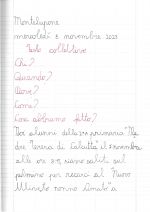 Montelupone
mercoledì 8 novembre 2023
Testo collettivo
Chi?
Quando?
Dove?
Come?
Cosa abbiamo fatto?
Noi alunni della primaria "Ma
dre Teresa di Calcutta" il 7 novembre
alle ore siamo saliti sul
pulmino per recarci al
nonno